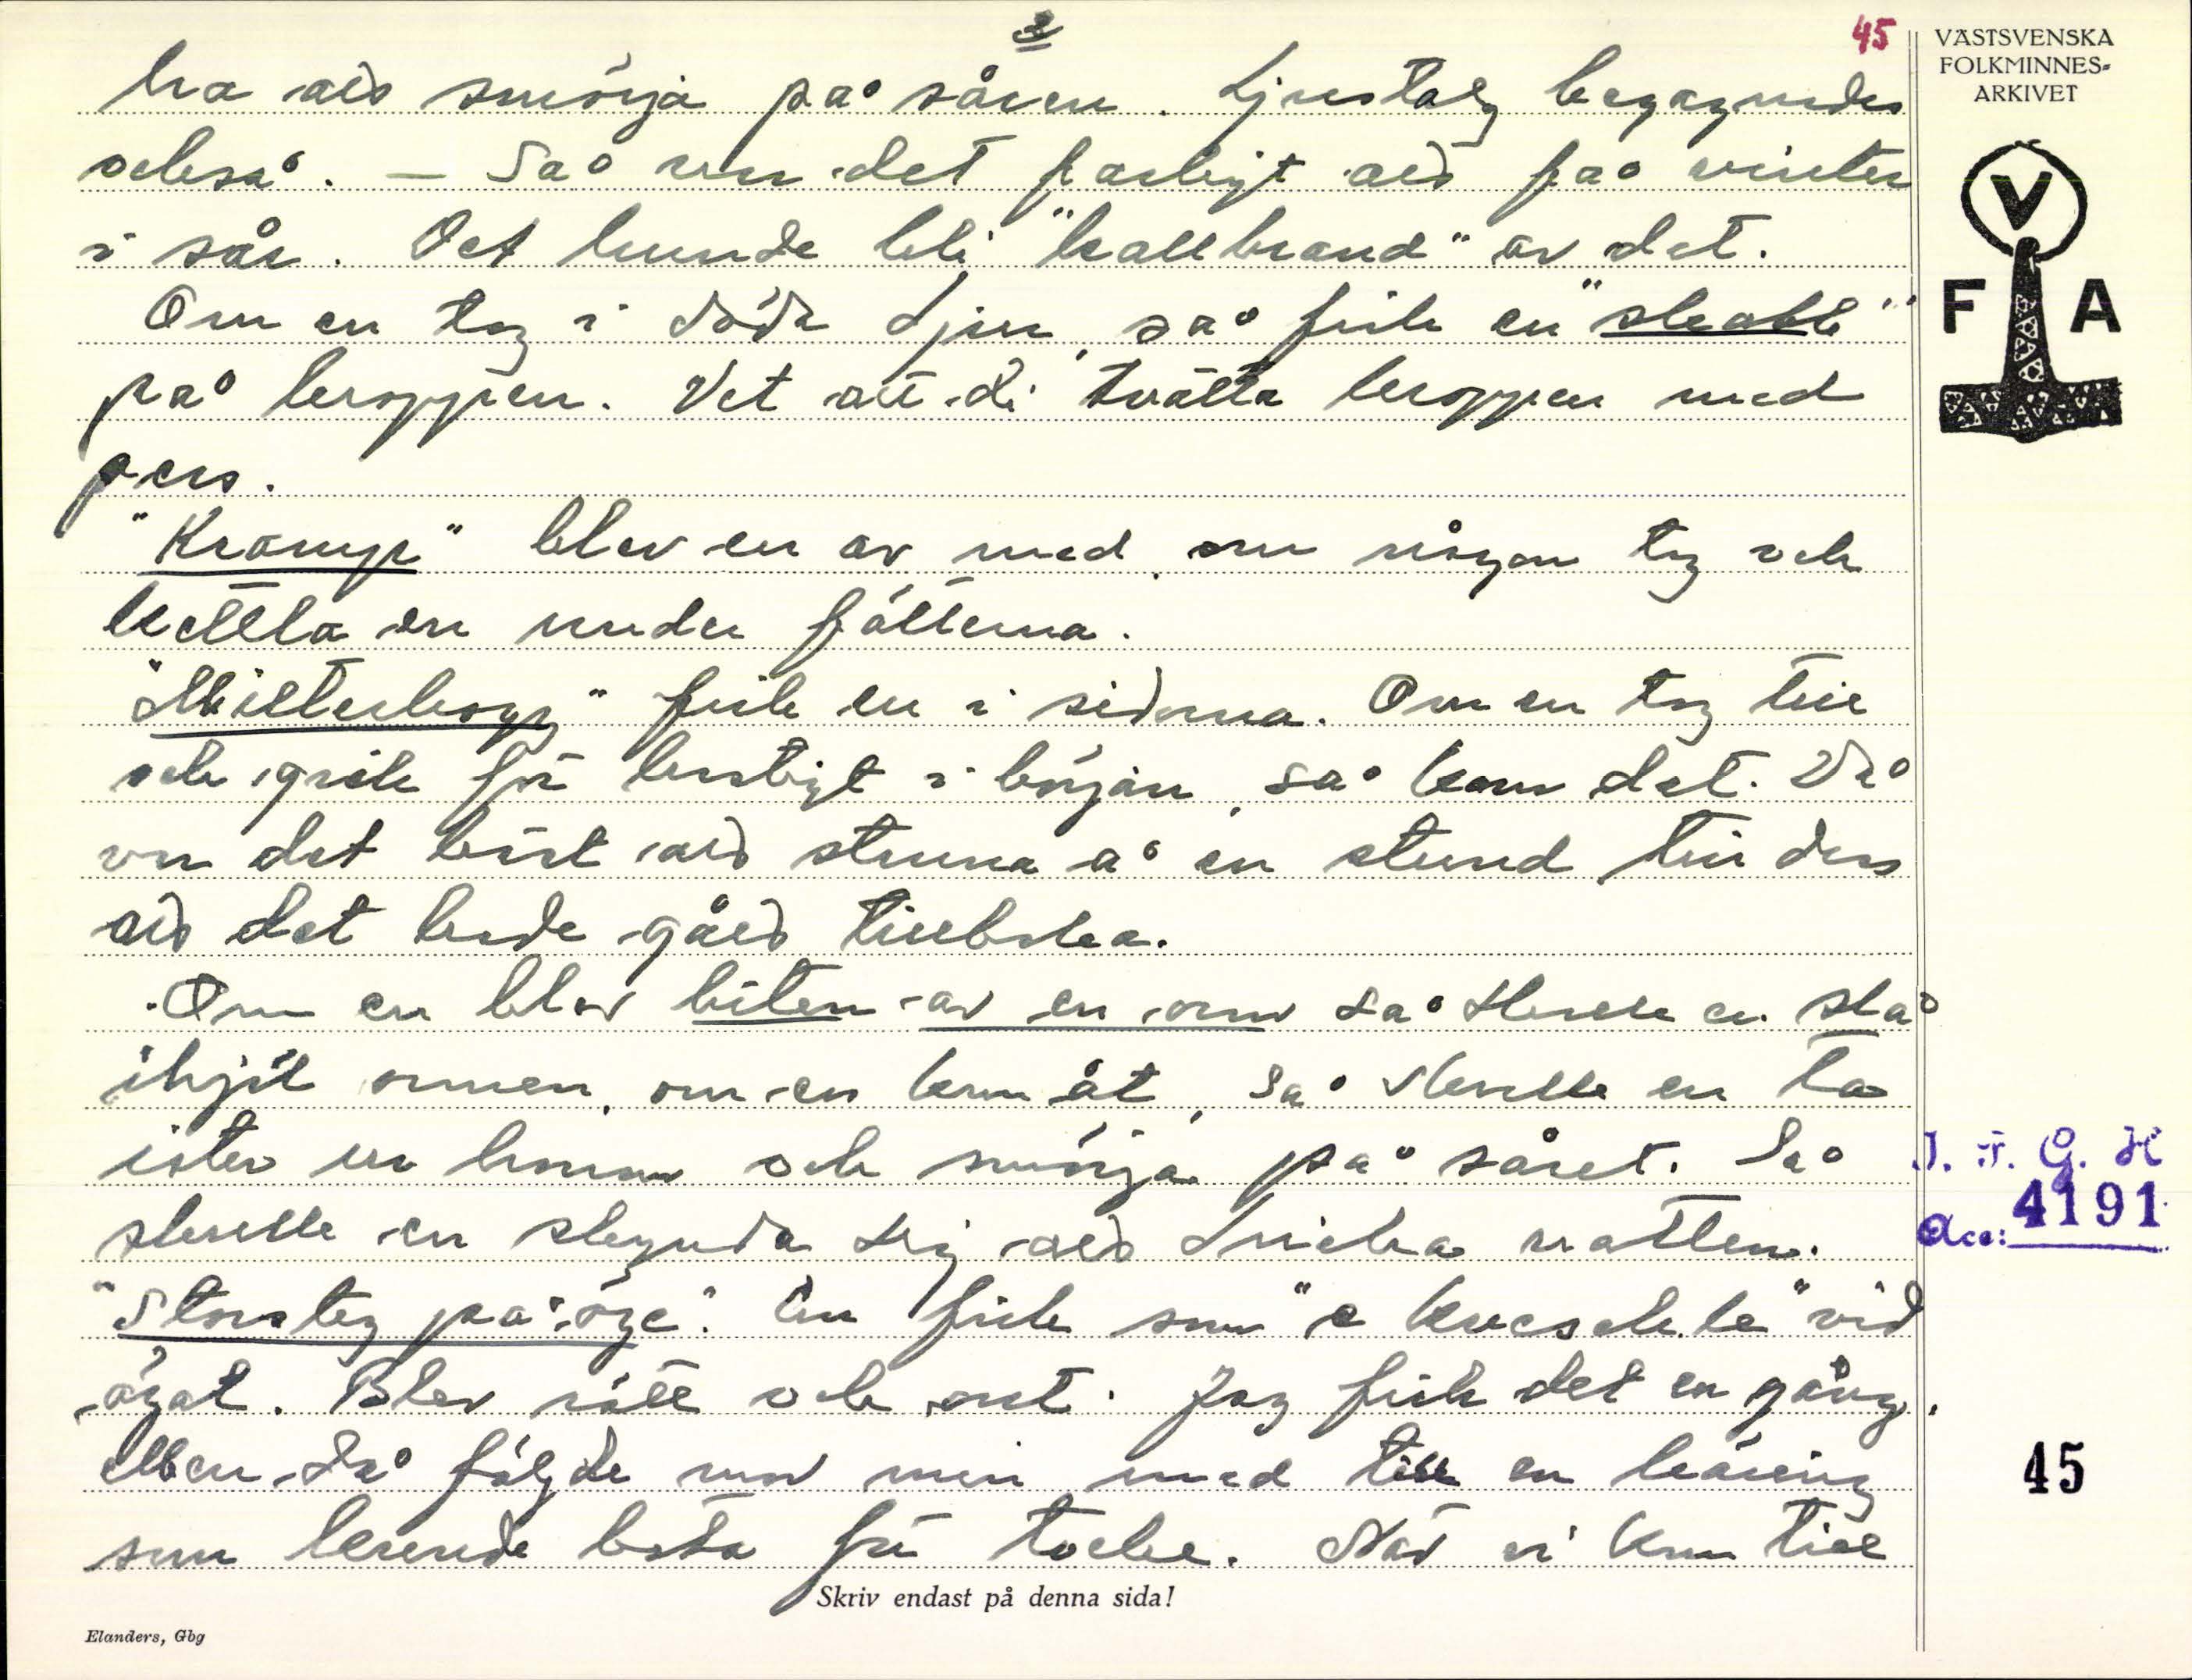 2
45
bra att smörja på såren. Ljustalg begagnades
också. — Så var det farligt att få vinter
i sår. Det kunde bli "kallbrand" av det.
Om en tog i döda djur, så fick en "skabb"
på kroppen. Vet att di tvätta kroppen med
piss.
"Kramp" blev en av med, om någon tog och
kettla en under fötterna.
"Mjilterhogg" fick en i sidorna. Om en tog till
och gick för hastigt i början, så kom det. Då
var det bäst att stanna å en stund till dess
att det hade gått tillbaka.
Om en blev biten av en orm så skulle en slå
ihjäl ormen, om en kom åt, så skulle en ta
ister ur honom och smörja på såret. Så
skulle en skynda sig att dricka vatten.
"Storsteg på öge". En fick som "e kvesele" vid
ögat. Blev rött och ont. Jag fick det en gång.
Men då följde mor min med till en käring
som kunde bota för tocke. När vi kom till
Skriv endast på denna sida!
Elanders, Gbg
VÄSTSVENSKA
FOLKMINNES-
ARKIVET
V
F A
I. F. G. H
Acc: 4191
45